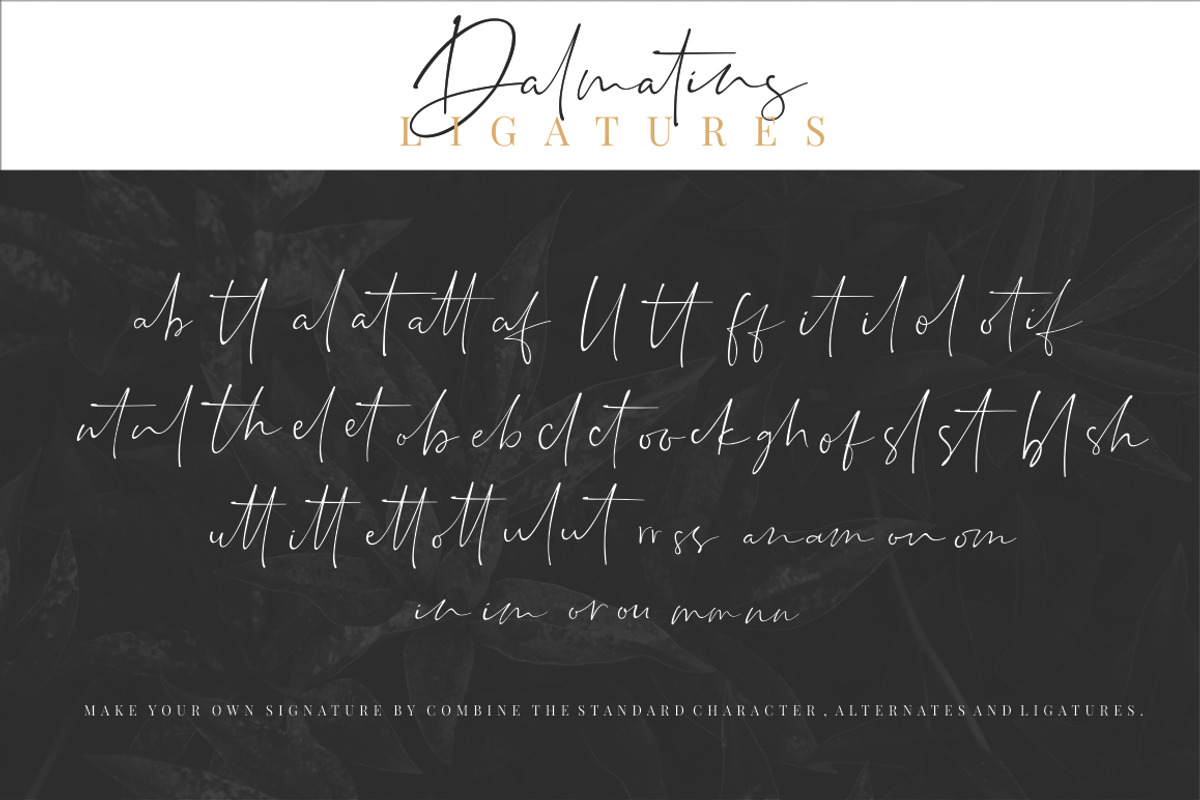 Dalmatins
LIGATURES
ab tl al at att af ll tt ff it il ol ot if
nt nl th el et ob eb cl ct oo ck gh of sl st bl sh
utt itt ett ott ul ut rr ss an am on om
in im or ou mm nn
MAKE YOUR OWN SIGNATURE BY COMBINE THE STANDARD CHARACTER , ALTERNATES AND LIGATURES.